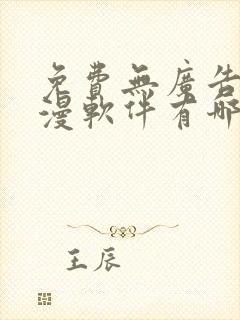 免費無廣告
漫軟件有哪
王辰